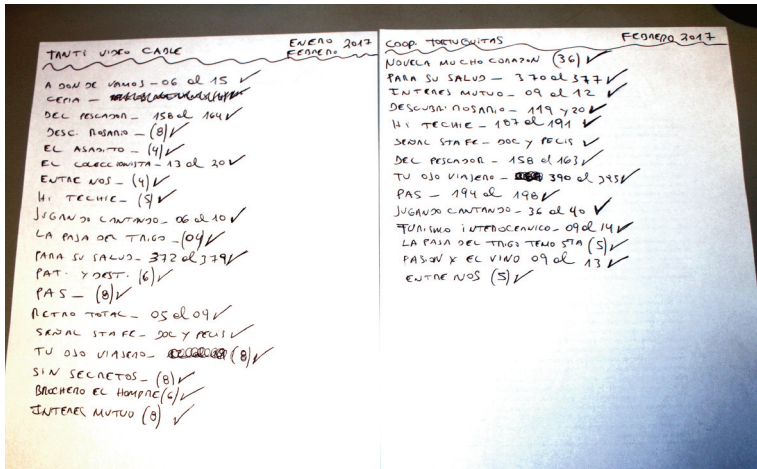 TANTI VIDEO CABLE
ENERO 2017
FEBRERO
A DONDE VAMOS - 06 al 15 ✓
CEPIA -
DEL PESCADOR - 158 al 164 ✓
DESC. ROSARIO - (8) ✓
EL ASADITO - (4) ✓
EL COLECCIONISTA - 13 al 20 ✓
ENTRE NOS - (4) ✓
HI TECHIE - (5) ✓
JUGANDO CANTANDO - 06 al 10 ✓
LA PAJA DEL TRIGO - (04) ✓
PARA SU SALUD - 372 al 379 ✓
PAT. Y DEST. (6) ✓
PAS - (8) ✓
RETRO TOTAL - 05 al 09 ✓
SEÑAL STA FE - DOC Y PELIS ✓
TU OJO VIAJERO - (8) ✓
SIN SECRETOS - (8) ✓
BROCHERO EL HOMBRE (6) ✓
INTERES MUTUO (8) ✓
COOP. TORTUGUITAS
FEBRERO 2017
NOVELA MUCHO CORAZON (36) ✓
PARA SU SALUD - 370 al 377 ✓
INTERES MUTUO - 09 al 12 ✓
DESCUBRI ROSARIO - 119 y 20 ✓
HI TECHIE - 187 al 191 ✓
SEÑAL STA FE - DOC Y PELIS ✓
DEL PESCADOR - 158 al 163 ✓
TU OJO VIAJERO - 390 al 395 ✓
PAS - 194 al 198 ✓
JUGANDO CANTANDO - 36 al 40 ✓
TURISMO INTEROCEANICO - 09 al 14 ✓
LA PAJA DEL TRIGO TEMO 5TA (5) ✓
PASION X EL VINO 09 al 13 ✓
ENTRE NOS (5) ✓